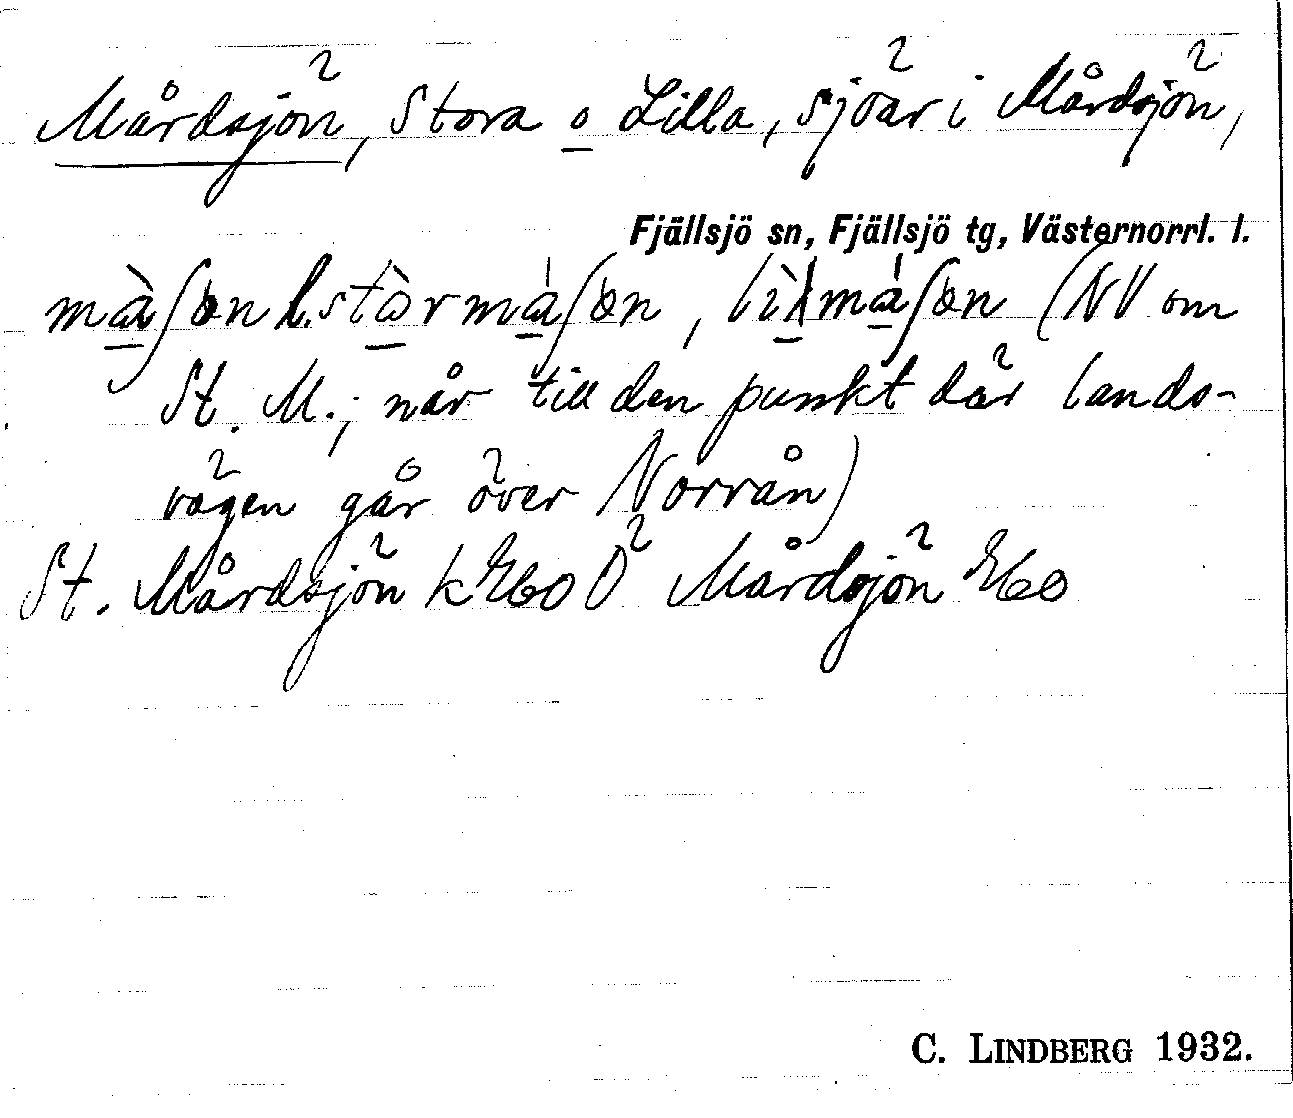 Mårdsjön, Stora o Lilla, sjöar i Mårdsjön,
Fjällsjö sn, Fjällsjö tg, Västernorrl. l.
mὰʃön l. stὰrmὰʃön, lìlmáʃön (NV om
St. M.; når till den punkt där lands-
vägen går över Norrån)
St. Mårdsjön k Ek60 Ö Mårdsjön Ek60
C. LINDBERG 1932.